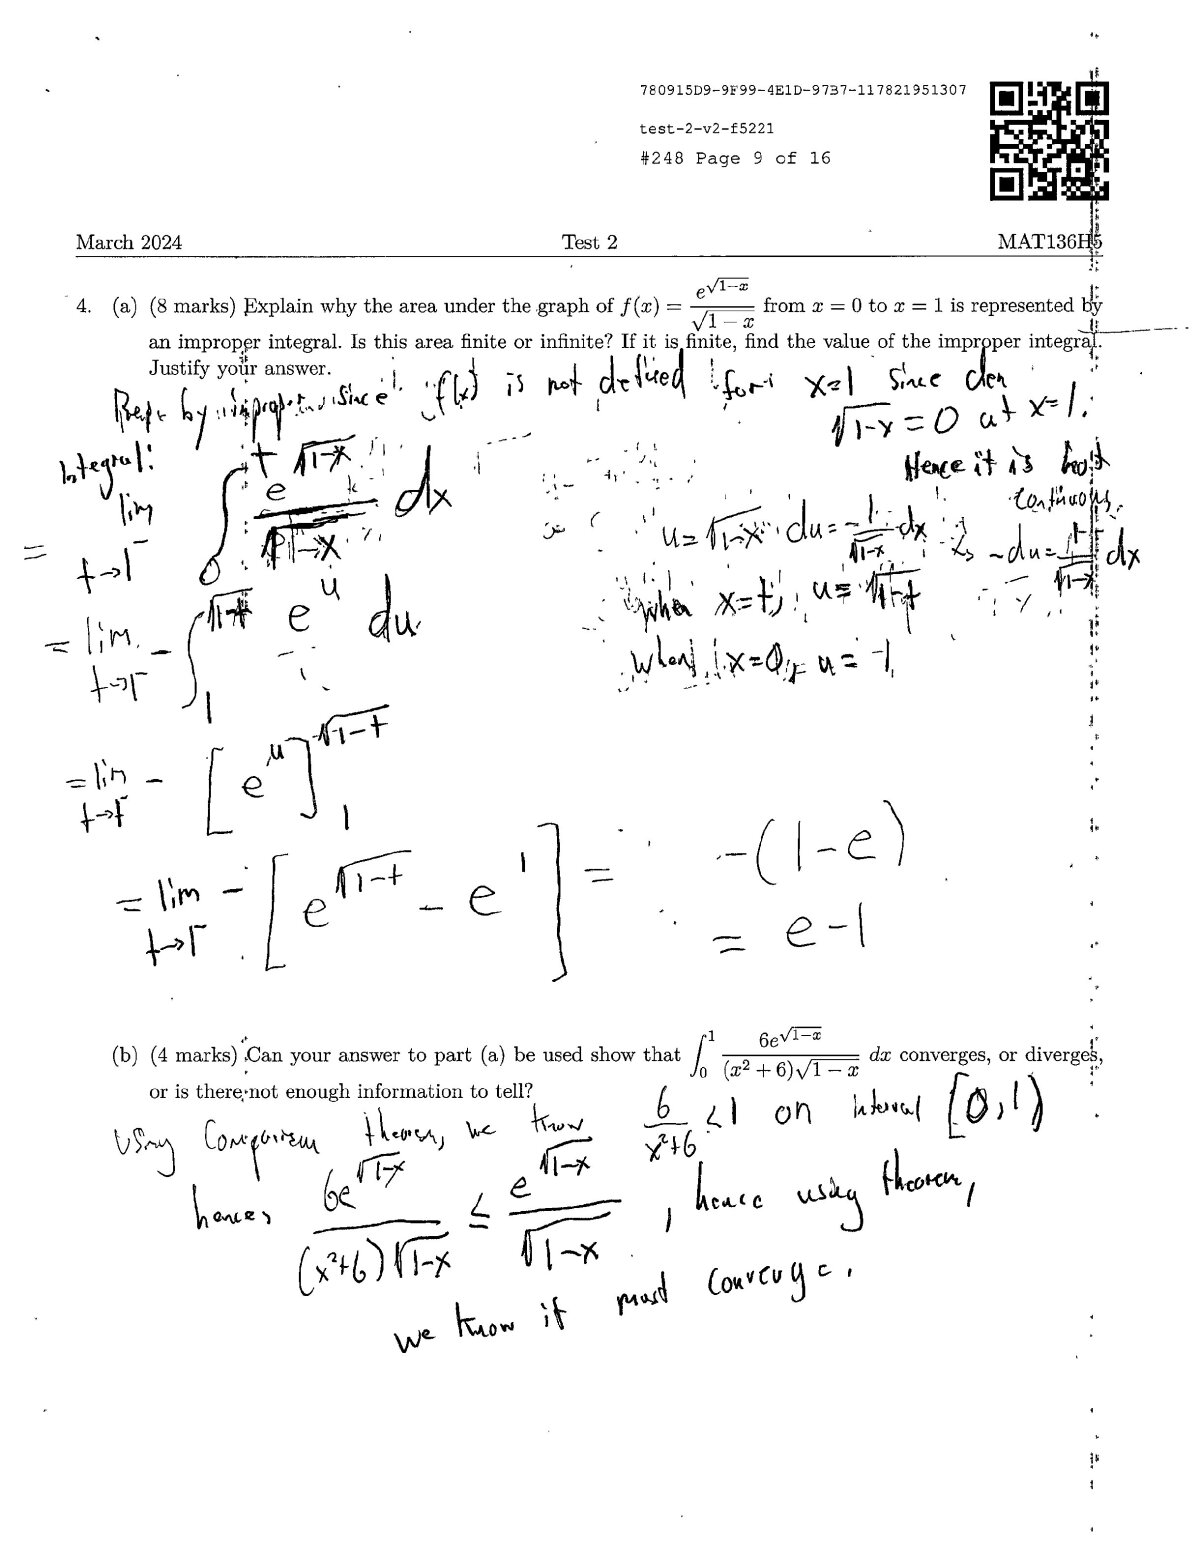 780915D9-9F99-4E1D-97B7-117821951307
test-2-v2-f5221
#248 Page 9 of 16
March 2024 Test 2 MAT136H5
4. (a) (8 marks) Explain why the area under the graph of f(x) = e^{√(1−x)} / √(1−x) from x = 0 to x = 1 is represented by
an improper integral. Is this area finite or infinite? If it is finite, find the value of the improper integral.
Justify your answer.
by since f(x) is not defined for x=1 since den
√(1-x) = 0 at x=1.
Hence it is
continuous.
Integral:
= lim t→1⁻ ∫_0^t e^{√(1-x)} / √(1-x) dx
u=√(1-x) du = -1/√(1-x) dx -du = 1/√(1-x) dx
when x=t, u = √(1-t)
when x=0, u = 1
= lim t→1⁻ - ∫_1^{√(1-t)} e^u du
= lim t→1⁻ - [e^u]_1^{√(1-t)}
= lim t→1⁻ - [e^{√(1-t)} - e^1] = -(1-e)
= e-1
(b) (4 marks) Can your answer to part (a) be used show that ∫_0^1 6e^{√(1−x)} / ((x²+6)√(1−x)) dx converges, or diverges,
or is there not enough information to tell?
Using Comparison theorem, we know 6/(x²+6) <1 on interval [0,1)
hence, 6e^{√(1-x)} / ((x²+6)√(1-x)) ≤ e^{√(1-x)} / √(1-x), hence using theorem,
we know it must converge.